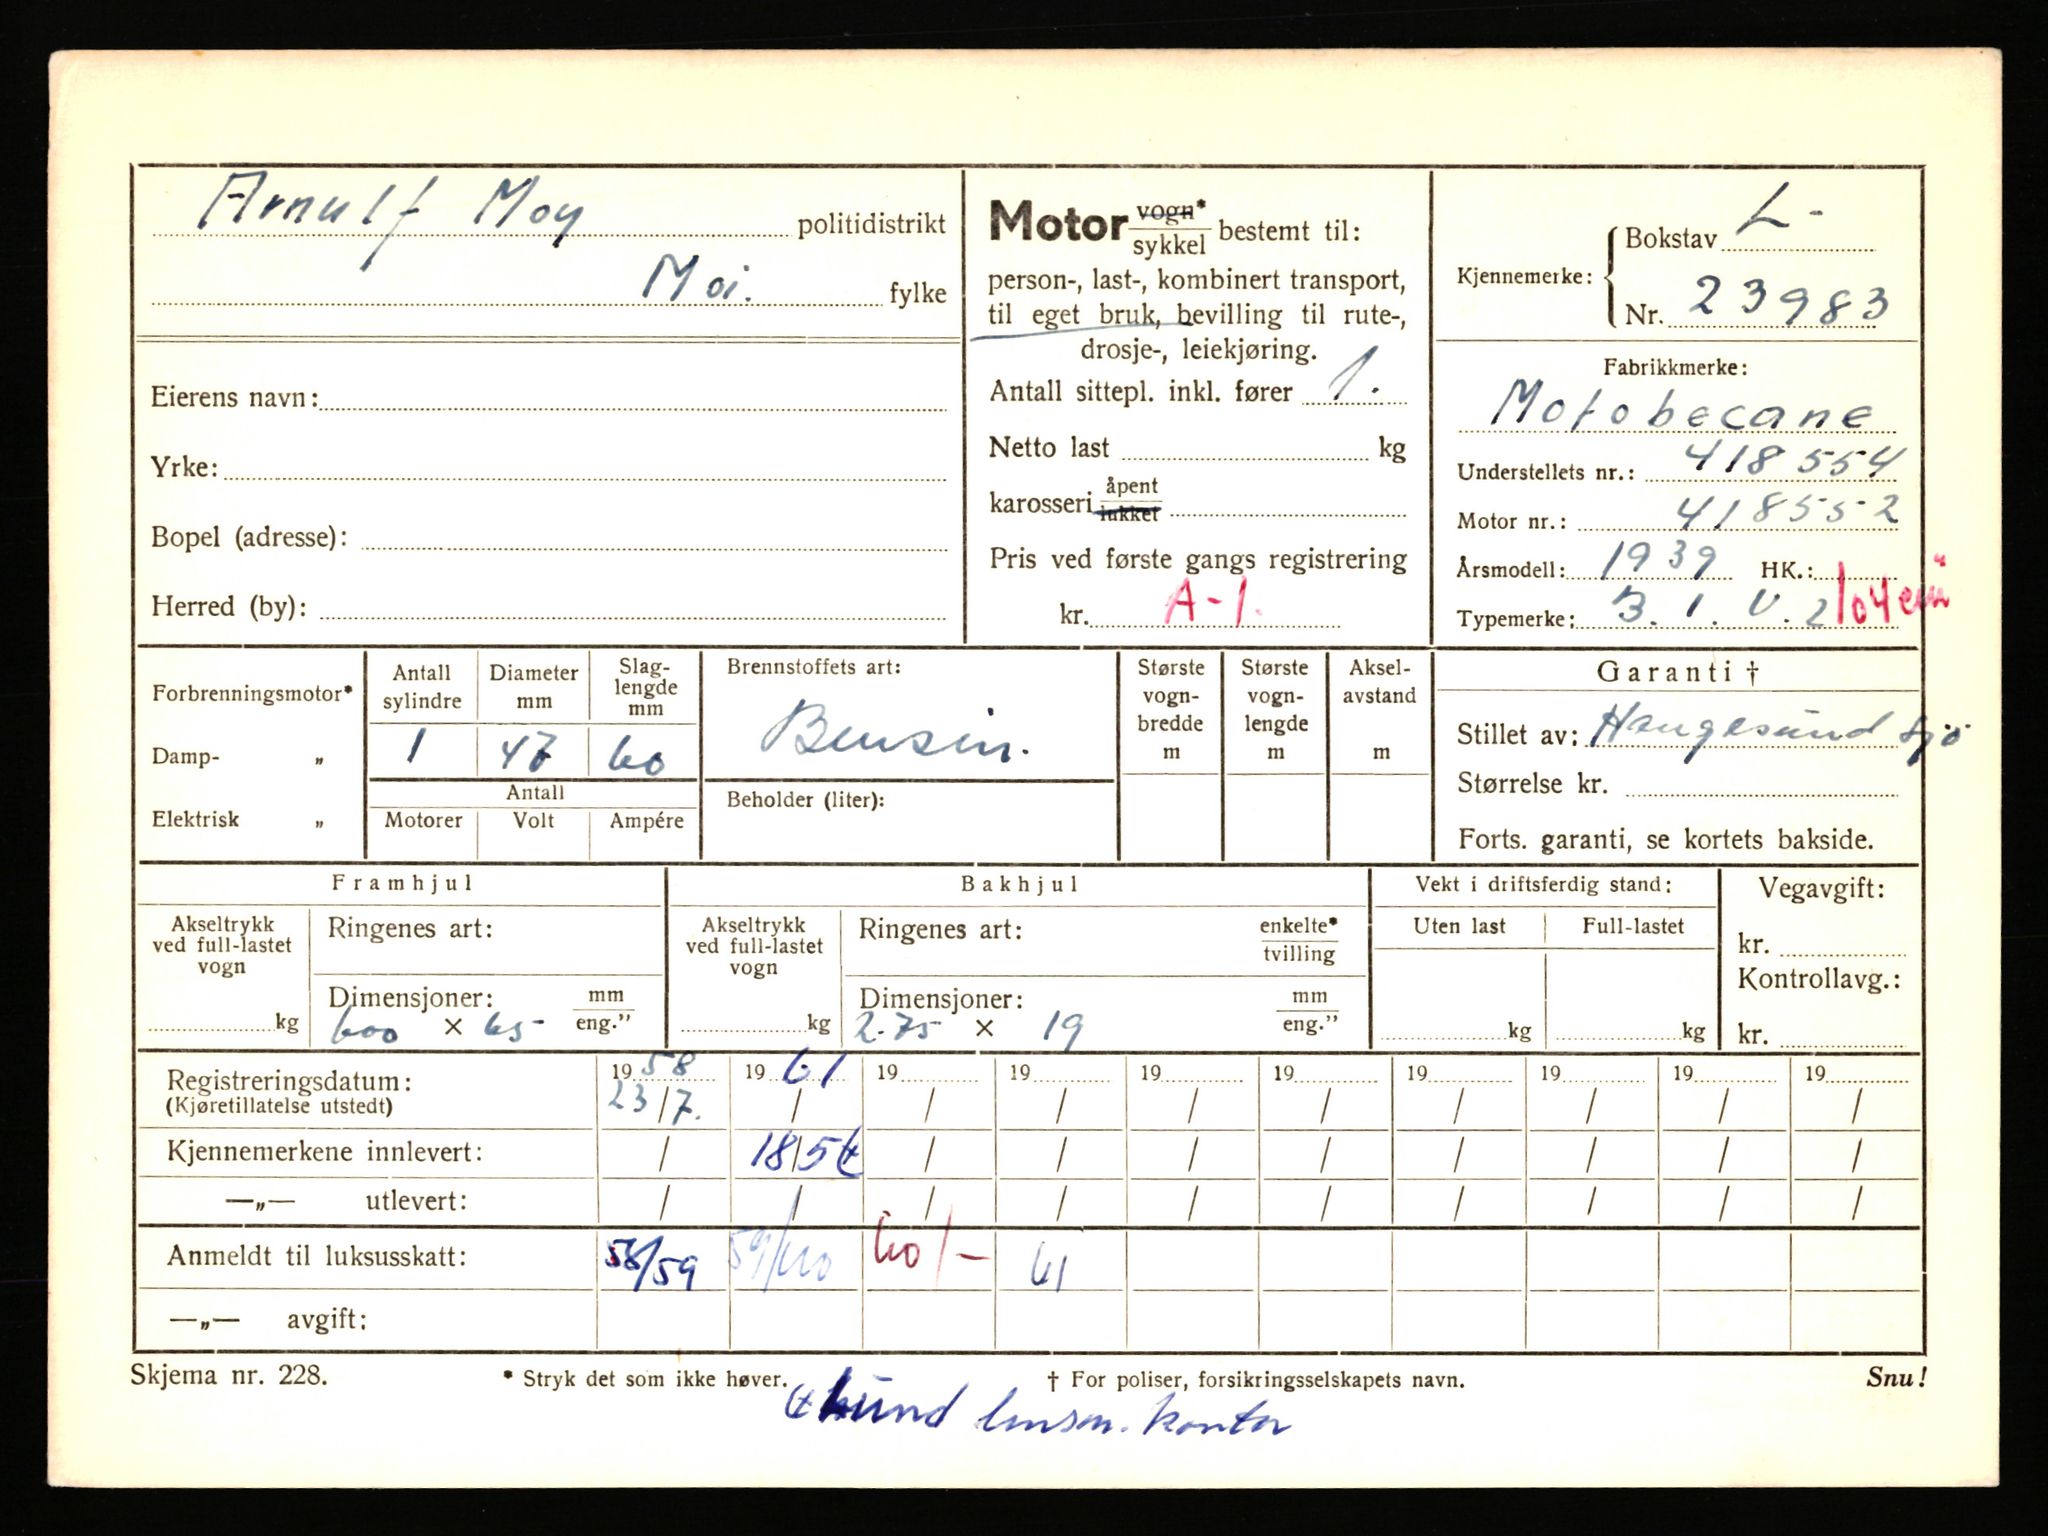 Arnulf Moy politidistrikt
Moi. fylke
Eierens navn:
Yrke:
Bopel (adresse):
Herred (by):
Motor vogn* sykkel bestemt til:
person-, last-, kombinert transport,
til eget bruk, bevilling til rute-,
drosje-, leiekjøring.
Antall sittepl. inkl. fører 1.
Netto last kg
karosseri åpent lukket
Pris ved første gangs registrering
kr. A-1.
Kjennemerke:
Bokstav L-
Nr. 23983
Fabrikkmerke:
Motobecane
Understellets nr.: 418554
Motor nr.: 418552
Årsmodell: 1939 HK.:
Typemerke: B. 1. V. 2 104 cm³
Forbrenningsmotor*
Damp- „
Elektrisk „
Antall sylindre
Diameter mm
Slag-lengde mm
1 47 60
Antall
Motorer Volt Ampére
Brennstoffets art:
Bensin.
Beholder (liter):
Største vogn-bredde m
Største vogn-lengde m
Aksel-avstand m
Garanti †
Stillet av: Haugesund Sjø
Størrelse kr.
Forts. garanti, se kortets bakside.
Framhjul
Akseltrykk ved full-lastet vogn
kg
Ringenes art:
Dimensjoner: mm eng.”
600 × 65
Bakhjul
Akseltrykk ved full-lastet vogn
kg
Ringenes art: enkelte* tvilling
Dimensjoner: mm eng.”
2.75 × 19
Vekt i driftsferdig stand:
Uten last Full-lastet
kg kg
Vegavgift:
kr.
Kontrollavg.:
kr.
Registreringsdatum: 19 58 19 61 19 19 19 19 19 19 19 19
(Kjøretillatelse utstedt) 23/7. / / / / / / / / /
Kjennemerkene innlevert: / 18/5 / / / / / / / /
—„— utlevert: / / / / / / / / / /
Anmeldt til luksusskatt: 58/59 59/60 60/- 61
—„— avgift:
Skjema nr. 228. * Stryk det som ikke høver. † For poliser, forsikringsselskapets navn. Snu!
Lund lensm. kontor